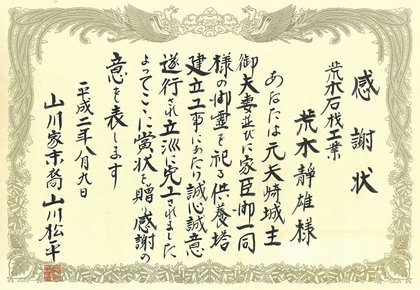 感謝状
荒木石材工業
荒木静雄様
あなたは元天崎城主
御夫妻並びに家臣御一同
様の御霊を祀る供養塔
建立工事にあたり誠心誠意
遂行され立派に完工されました
よってここに賞状を贈り感謝の
意を表します
平成二年八月九日
山川家末裔 山川松平